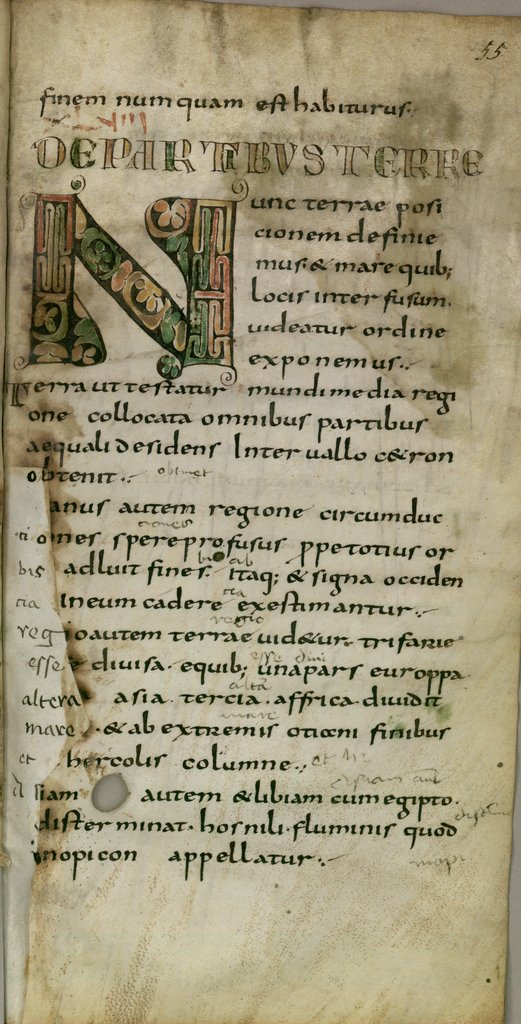 55
finem numquam est habiturus.
XLVIII
DE PARTIBVS TERRE
Nunc terrae posi
cionem definie
mus. & mare quib;
locis inter fusum.
uideatur ordine
exponemus.
Terra ut testatur mundi media regi
one collocata omnibus partibus
aequali desidens Inter uallo c&ron
obtenit. obtinet
anus autem regione circumduc
ti ones spere profusus ppetotius or
bis adluit fines. Itaq; & signa occiden
tia Ineum cadere exestimantur.
regio autem terrae uid&ur. trifarie
esse divisa. equib; una pars europpa
altera asia tercia. affrica diuidit
mare & ab extremis otiœni finibus
et hercolis columne.
siam autem & libiam cum egipto.
disterminat. hos nili. fluminis quod
inopicon appellatur.